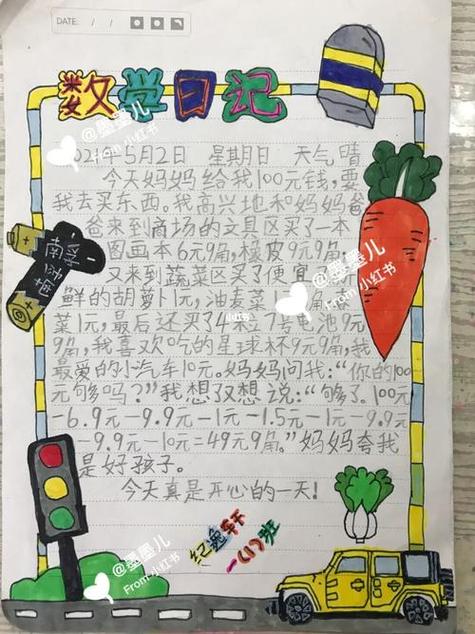 DATE: / /
数学日记
@墨墨儿
From 小红书
02年5月2日 星期日 天气晴
今天妈妈给我100元钱,要
我去买东西。我高兴地和妈妈爸
爸来到商场的文具区买了一本
图画本6元9角,橡皮9元9角,
又来到蔬菜区买了便宜
鲜的胡萝卜1元,油麦菜1
菜1元,最后还买了4粒7号电池9元
9角,我喜欢吃的星球杯9元9角,我
最爱的小汽车10元。妈妈问我:“你的100
元够吗?”我想了又想说:“够了。100元
-6.9元-9.9元-1元-1.5元-1元-9.9元
-9.9元-10元=49元9角。”妈妈夸我
是好孩子。
今天真是开心的一天!
南孚
@墨墨儿
From 小红书
小红书
一(1)班
@墨墨儿
From 小红书